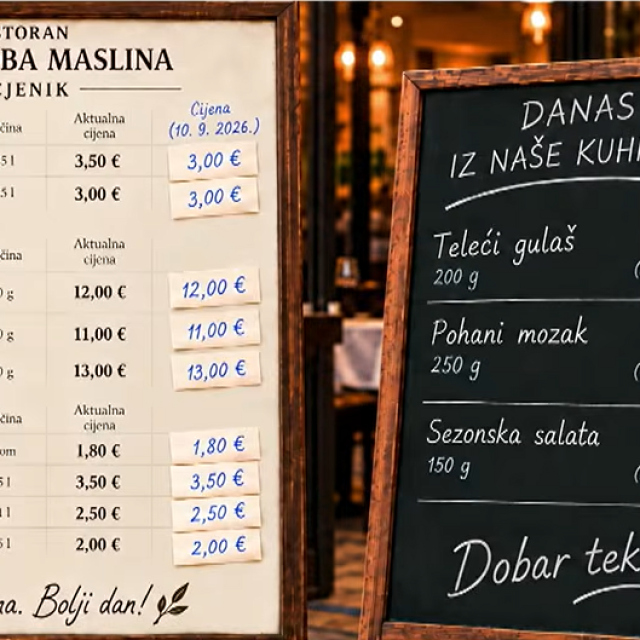 STORAN
BA MASLINA
CJENIK
čina Aktualna cijena Cijena (10. 9. 2026.)
5 l 3,50 € 3,00 €
5 l 3,00 € 3,00 €
čina Aktualna cijena
0 g 12,00 € 12,00 €
0 g 11,00 € 11,00 €
0 g 13,00 € 13,00 €
čina Aktualna cijena
om 1,80 € 1,80 €
5 l 3,50 € 3,50 €
1 l 2,50 € 2,50 €
5 l 2,00 € 2,00 €
na. Bolji dan!
DANAS
IZ NAŠE KUHI
Teleći gulaš
200 g
Pohani mozak
250 g
Sezonska salata
150 g
Dobar tek